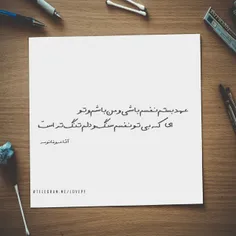 عهد بستم نفسم باشی و من باشم و تو
که بی تو نفسم سنگ و دلم تنگ تر است
#TELEGRAM.ME/LOVEPV